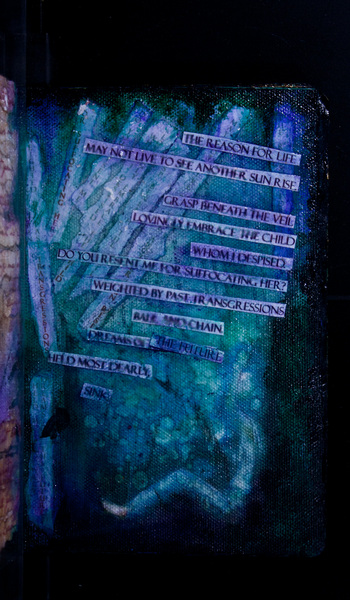 THE REASON FOR LIFE
MAY NOT LIVE TO SEE ANOTHER SUN RISE
GRASP BENEATH THE VEIL
LOVINGLY EMBRACE THE CHILD
WHOM I DESPISED.
DO YOU RESENT ME FOR SUFFOCATING HER?
WEIGHTED BY PAST TRANSGRESSIONS
BALL AND CHAIN.
DREAMS OF THE FUTURE
HELD MOST DEARLY,
SINK